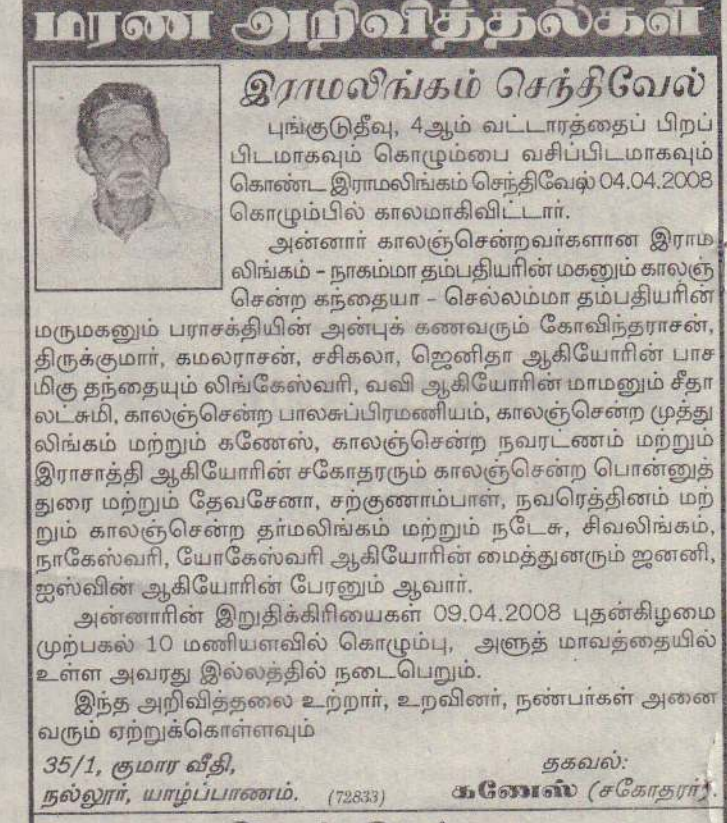 மரண அறிவித்தல்கள்
இராமலிங்கம் செந்திவேல்
புங்குடுதீவு, 4ஆம் வட்டாரத்தைப் பிறப்
பிடமாகவும் கொழும்பை வசிப்பிடமாகவும்
கொண்ட இராமலிங்கம் செந்திவேல் 04.04.2008
கொழும்பில் காலமாகிவிட்டார்.
அன்னார் காலஞ்சென்றவர்களான இராம
லிங்கம் – நாகம்மா தம்பதியரின் மகனும் காலஞ்
சென்ற கந்தையா – செல்லம்மா தம்பதியரின்
மருமகனும் பராசக்தியின் அன்புக் கணவரும் கோவிந்தராசன்,
திருக்குமார், கமலராசன், சசிகலா, ஜெனிதா ஆகியோரின் பாச
மிகு தந்தையும் லிங்கேஸ்வரி, வவி ஆகியோரின் மாமனும் சீதா
லட்சுமி, காலஞ்சென்ற பாலசுப்பிரமணியம், காலஞ்சென்ற முத்து
லிங்கம் மற்றும் கணேஸ், காலஞ்சென்ற நவரட்ணம் மற்றும்
இராசாத்தி ஆகியோரின் சகோதரரும் காலஞ்சென்ற பொன்னுத்
துரை மற்றும் தேவசேனா, சற்குணாம்பாள், நவரெத்தினம் மற்
றும் காலஞ்சென்ற தர்மலிங்கம் மற்றும் நடேசு, சிவலிங்கம்,
நாகேஸ்வரி, யோகேஸ்வரி ஆகியோரின் மைத்துனரும் ஜனனி,
ஐஸ்வின் ஆகியோரின் பேரனும் ஆவார்.
அன்னாரின் இறுதிக்கிரியைகள் 09.04.2008 புதன்கிழமை
முற்பகல் 10 மணியளவில் கொழும்பு, அளுத் மாவத்தையில்
உள்ள அவரது இல்லத்தில் நடைபெறும்.
இந்த அறிவித்தலை உற்றார், உறவினர், நண்பர்கள் அனை
வரும் ஏற்றுக்கொள்ளவும்
35/1, குமார வீதி, தகவல்:
நல்லூர், யாழ்ப்பாணம். (72833) கணேஸ் (சகோதரர்).